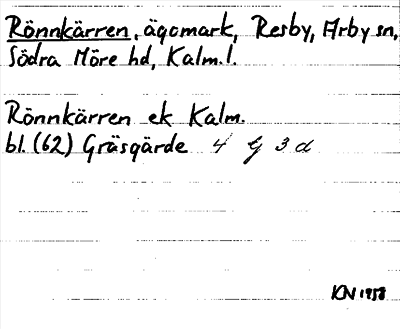 Rönnkärren, ägomark, Resby, Arby sn,
Södra Möre hd, Kalm. l.
Rönnkärren ek Kalm.
bl. (62) Gräsgärde 4 G 3 d
KN 1958